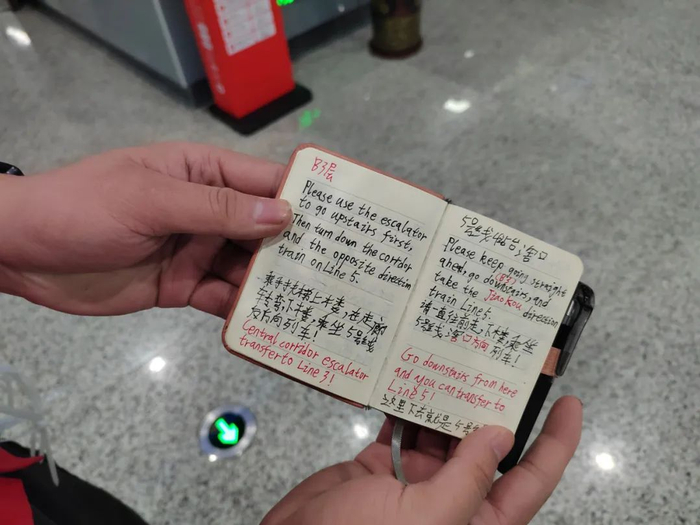 Please use the escalator
to go upstairs first,
Then turn down the corridor
and the opposite direction
train on Line 5.
乘手扶电梯上楼,在走廊
转弯,下楼,乘坐5号线
反方向列车!
Central corridor escalator
transfer to Line 3!
5号线 窖口
Please keep going straight
ahead, go downstairs, and
take the Jiaokou direction
train Line 5.
请一直往前走,下楼,乘坐
5号线 窖口方向列车!
Go downstairs from here
and you can transfer to
Line 5!
这里下去就是5号线